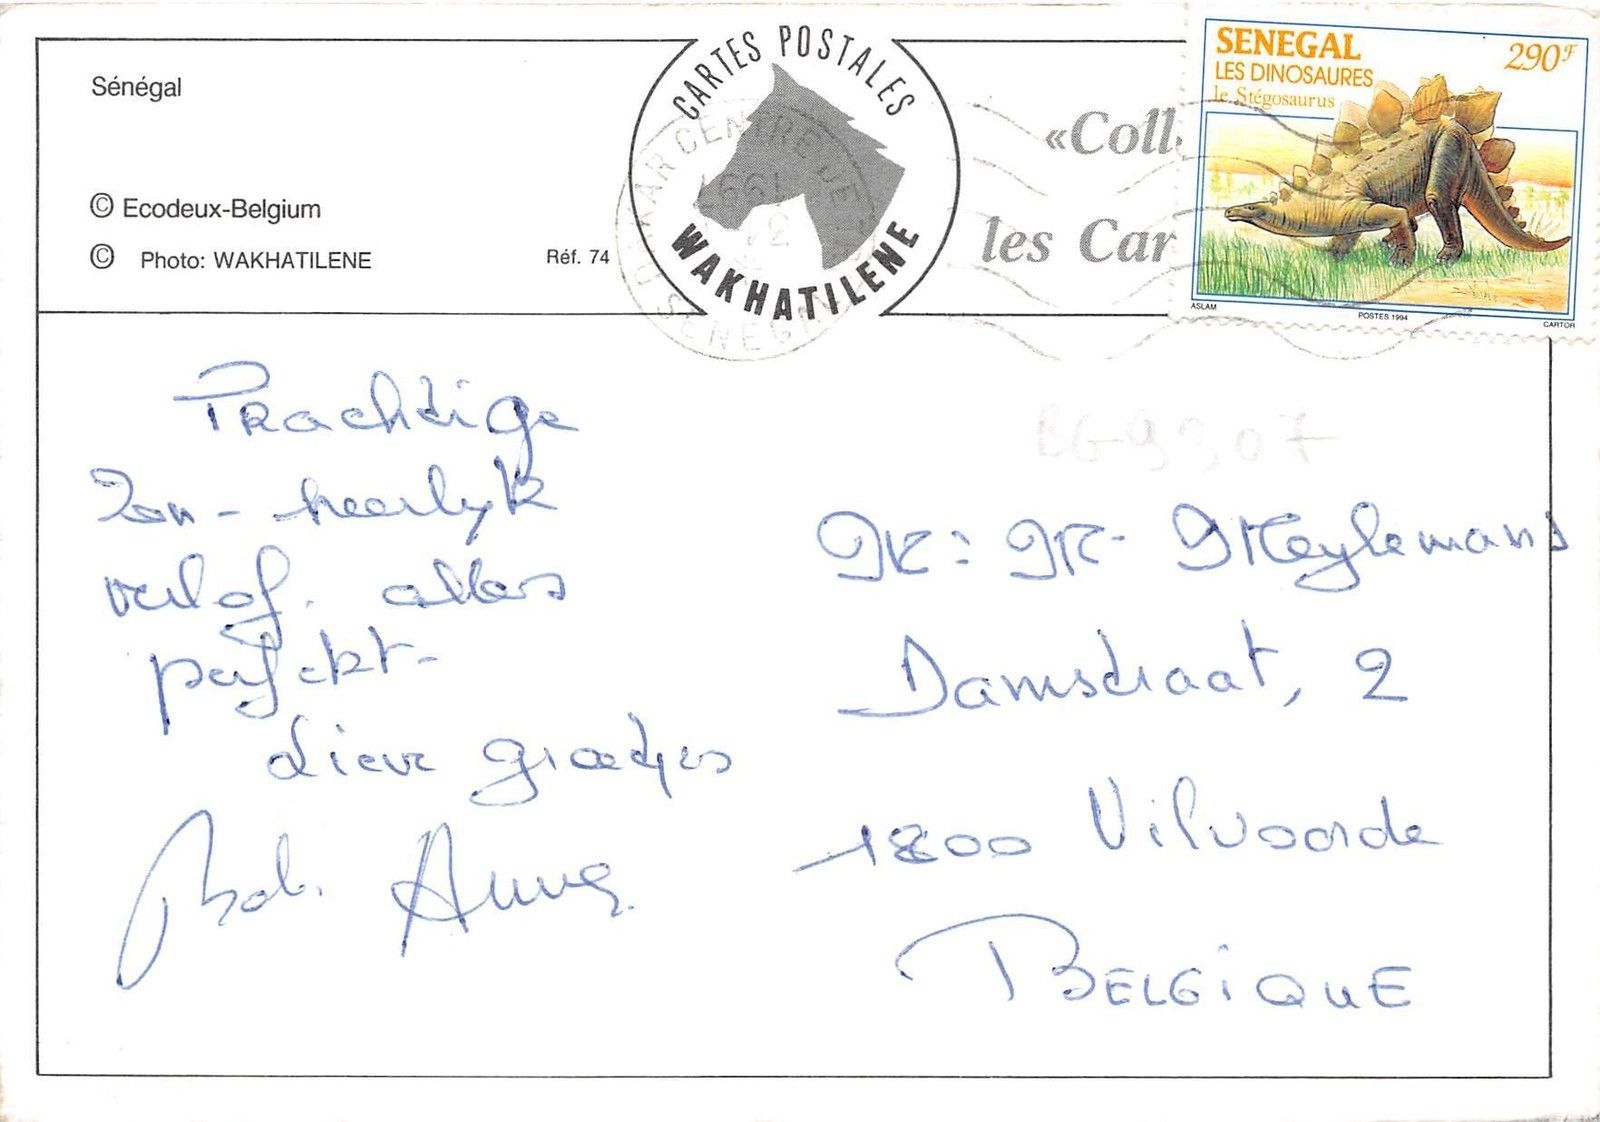 Sénégal
© Ecodeux-Belgium
© Photo: WAKHATILENE
Réf. 74
CARTES POSTALES
WAKHATILENE
DAKAR CENTRE DE
SENEGAL
1997
«Coll
les Car
SENEGAL
290F
LES DINOSAURES
le Stégosaurus
ASLAM
POSTES 1994
CARTOR
Prachtige
Zon - heerlijk
verlof. alles
perfekt -
Lieve groetjes
Bob. Anna
BG9307
Mr. Mr. Meylemans
Damstraat, 2
1800 Vilvoorde
BELGIQUE